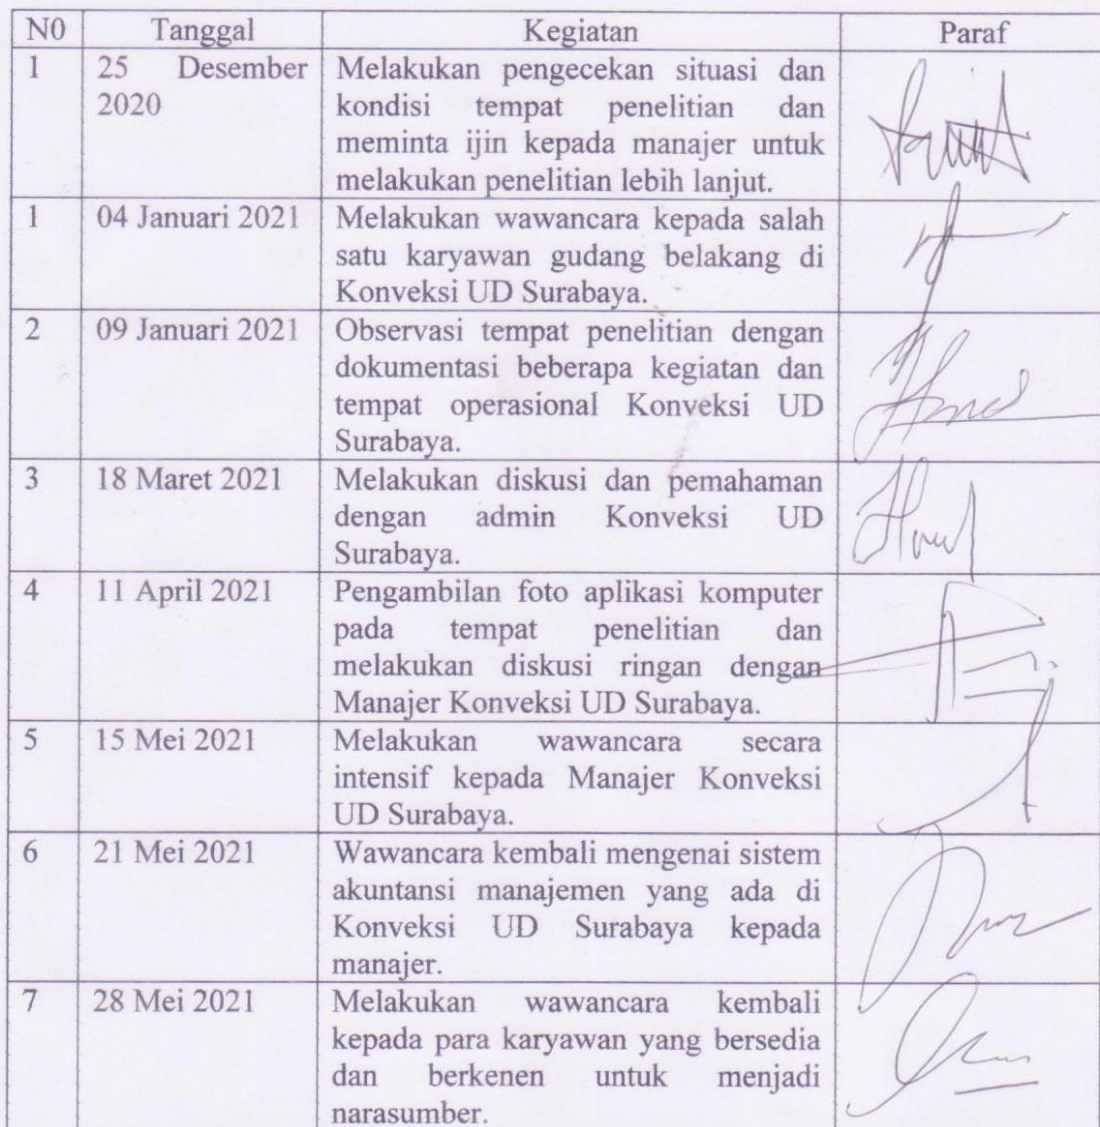 N0 Tanggal Kegiatan Paraf
1 25 Desember Melakukan pengecekan situasi dan
2020 kondisi tempat penelitian dan
meminta ijin kepada manajer untuk
melakukan penelitian lebih lanjut.
1 04 Januari 2021 Melakukan wawancara kepada salah
satu karyawan gudang belakang di
Konveksi UD Surabaya.
2 09 Januari 2021 Observasi tempat penelitian dengan
dokumentasi beberapa kegiatan dan
tempat operasional Konveksi UD
Surabaya.
3 18 Maret 2021 Melakukan diskusi dan pemahaman
dengan admin Konveksi UD
Surabaya.
4 11 April 2021 Pengambilan foto aplikasi komputer
pada tempat penelitian dan
melakukan diskusi ringan dengan
Manajer Konveksi UD Surabaya.
5 15 Mei 2021 Melakukan wawancara secara
intensif kepada Manajer Konveksi
UD Surabaya.
6 21 Mei 2021 Wawancara kembali mengenai sistem
akuntansi manajemen yang ada di
Konveksi UD Surabaya kepada
manajer.
7 28 Mei 2021 Melakukan wawancara kembali
kepada para karyawan yang bersedia
dan berkenen untuk menjadi
narasumber.